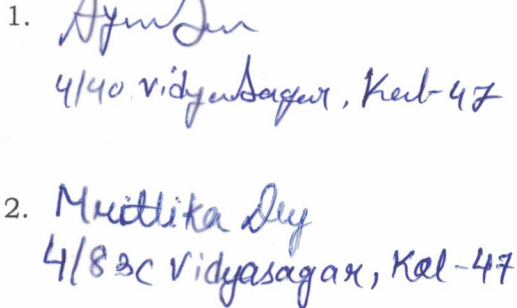 1.
4/40 Vidyasagar, Kol-47
2. Mrittika Dey
4/83C Vidyasagar, Kol-47